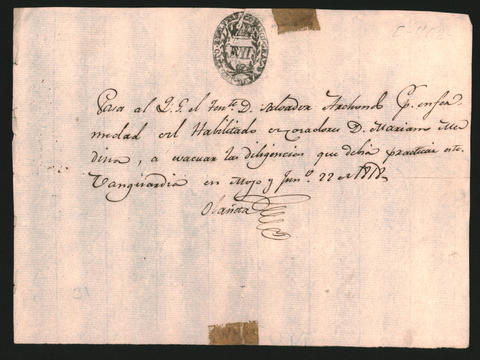 Pasa al Q.G. el Ten.te D. Salvador Archond p.r enfer
medad del Habilitado de Coradores D. Mariano Me
dina, a evacuar las diligencias que debia practicar este.
Vanguardia en Mojo y Jun.o 22 de 1818
Olañeta